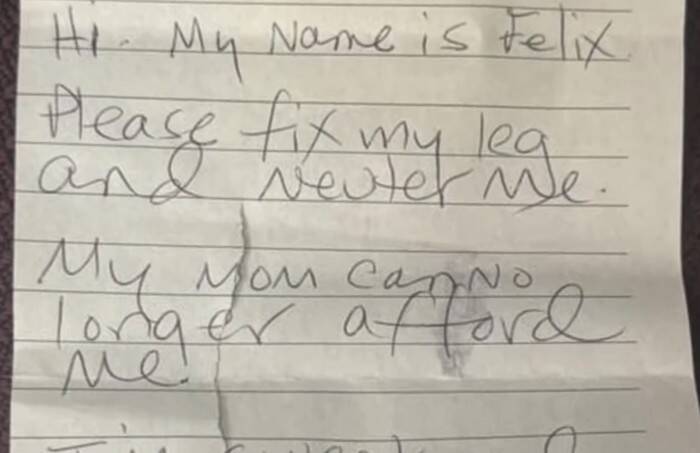 Hi. My Name is Felix
Please fix my leg
and Neuter Me.
My Mom can No
longer afford
Me.